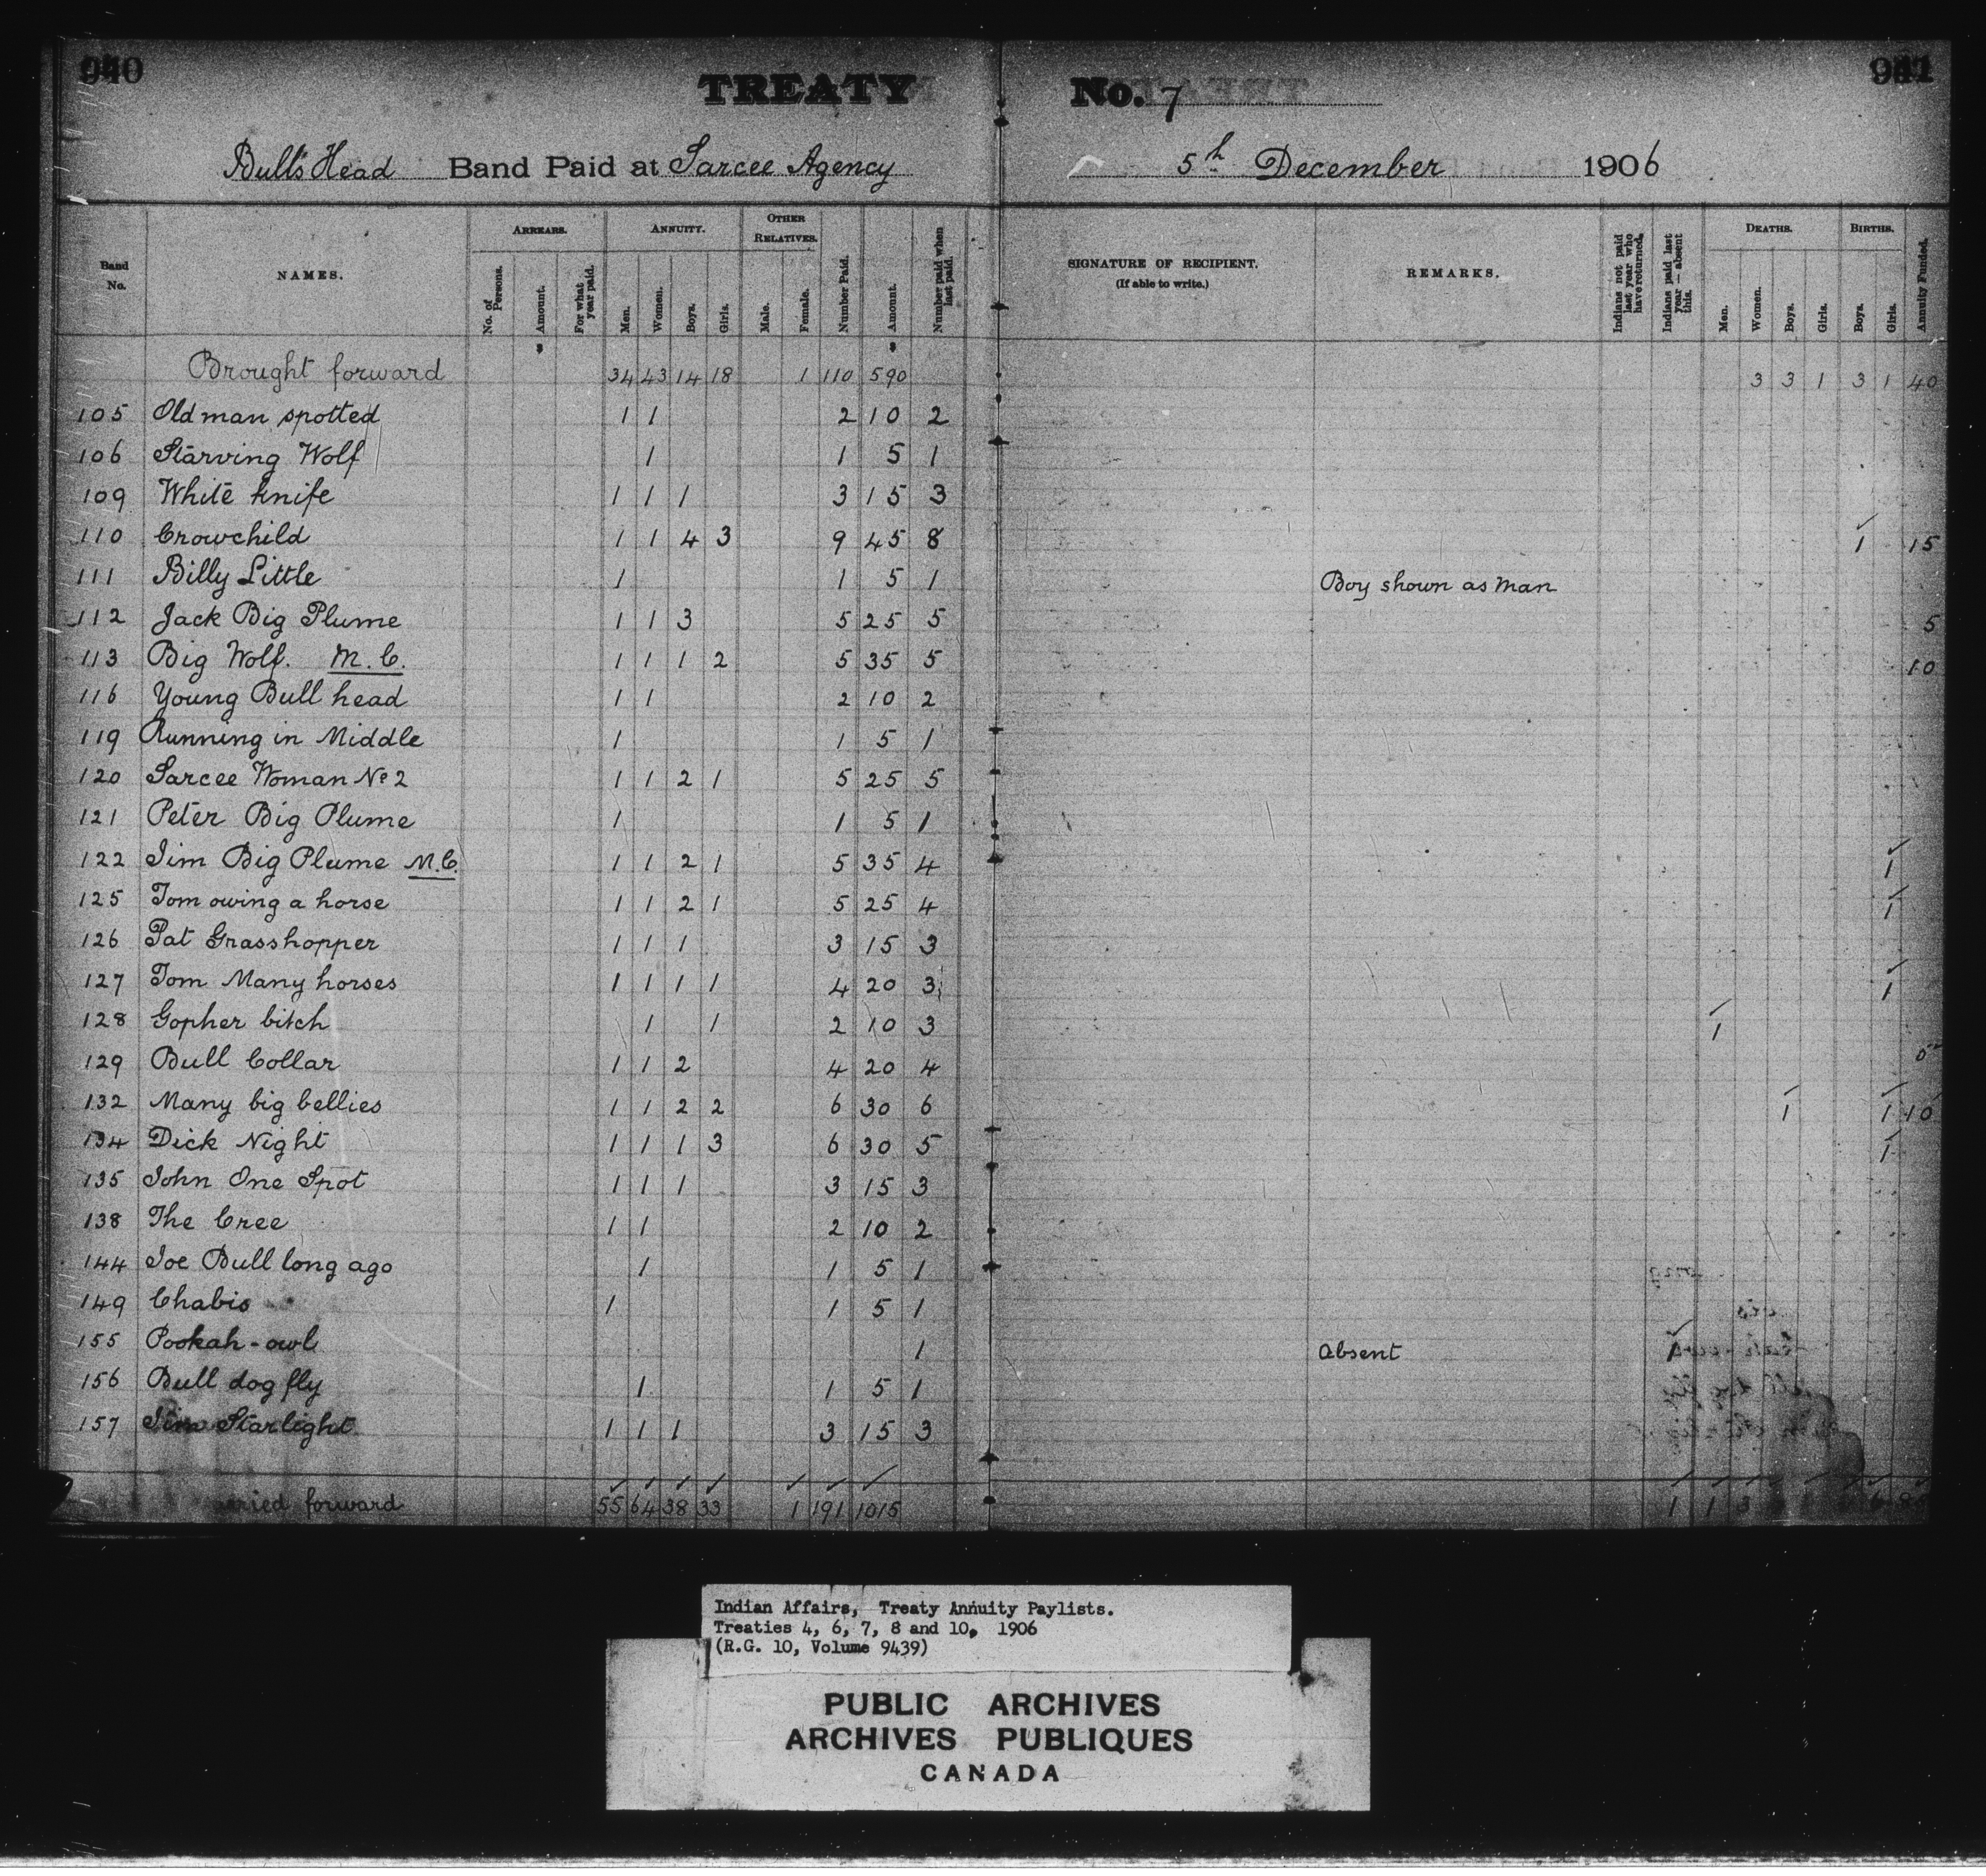 940
941
TREATY No. 7
Bull's Head Band Paid at Sarcee Agency 5th December 1906
Band No.
NAMES.
ARREARS.
No. of Persons.
Amount.
For what year paid.
ANNUITY.
Men.
Women.
Boys.
Girls.
OTHER RELATIVES.
Male.
Female.
Number Paid.
Amount.
Number paid when last paid.
SIGNATURE OF RECIPIENT.
(If able to write.)
REMARKS.
Indians not paid last year who have returned.
Indians paid last year — absent this.
DEATHS.
Men.
Women.
Boys.
Girls.
BIRTHS.
Boys.
Girls.
Annuity Funded.
$ $
Brought forward 34 43 14 18 1 110 590 3 3 1 3 1 40
105 Old man spotted 1 1 2 10 2
106 Starving Wolf 1 1 5 1
109 White knife 1 1 1 3 15 3
110 Crowchild 1 1 4 3 9 45 8 1 15
111 Billy Little 1 1 5 1 Boy shown as man
112 Jack Big Plume 1 1 3 5 25 5 5
113 Big Wolf. M.C. 1 1 1 2 5 35 5 10
116 Young Bull head 1 1 2 10 2
119 Running in Middle 1 1 5 1
120 Sarcee Woman No 2 1 1 2 1 5 25 5
121 Peter Big Plume 1 1 5 1
122 Jim Big Plume M.C. 1 1 2 1 5 35 4 1
125 Tom owing a horse 1 1 2 1 5 25 4 1
126 Pat Grasshopper 1 1 1 3 15 3
127 Tom Many horses 1 1 1 1 4 20 3 1
128 Gopher bitch 1 1 2 10 3 1
129 Bull Collar 1 1 2 4 20 4 5
132 Many big bellies 1 1 2 2 6 30 6 1 1 10
134 Dick Night 1 1 1 3 6 30 5 1
135 John One Spot 1 1 1 3 15 3
138 The Cree 1 1 2 10 2
144 Joe Bull long ago 1 1 5 1
149 Chabis 1 1 5 1
155 Pookah-owl 1 Absent 1
156 Bull dog fly 1 1 5 1
157 Jim Starlight 1 1 1 3 15 3
forward 55 64 38 33 1 191 1015 1 1 3
Indian Affairs, Treaty Annuity Paylists.
Treaties 4, 6, 7, 8 and 10, 1906
(R.G. 10, Volume 9439)
PUBLIC ARCHIVES
ARCHIVES PUBLIQUES
CANADA